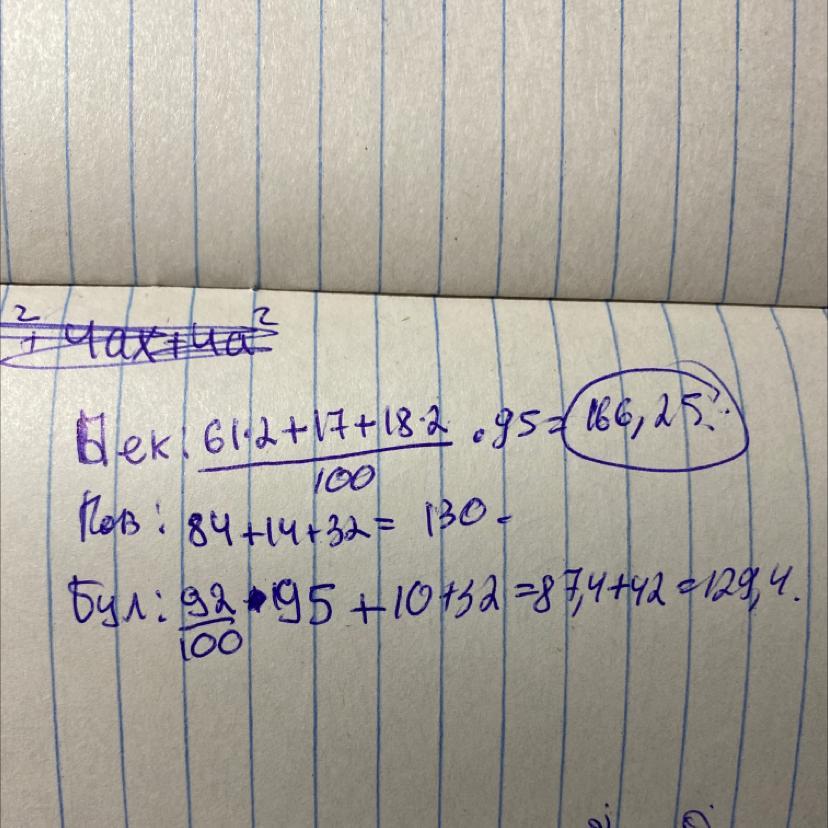 ² + 4ax + 4a²
Чек: 61·2+17+18·2 / 100 · 95 = 166,25.
Пов: 84+14+32= 130 -
Бул: 92/100 · 95 + 10 + 32 = 87,4+42 = 129,4.